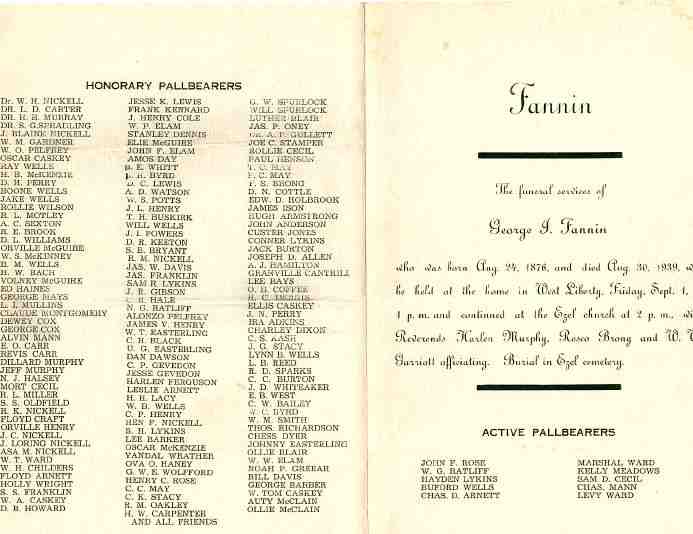 HONORARY PALLBEARERS
Dr. W. H. NICKELL
DR. L. D. CARTER
DR. H. B. MURRAY
DR. S. G. SPRADLING
J. BLAINE NICKELL
W. M. GARDNER
W. O. PELFREY
OSCAR CASKEY
RAY WELLS
H. B. McKENZIE
D. H. PERRY
BOONE WELLS
JAKE WELLS
ROLLIE WILSON
R. L. MOTLEY
A. C. SEXTON
R. E. BROOK
D. L. WILLIAMS
ORVILLE McGUIRE
W. S. McKINNEY
B. M. WELLS
B. W. BACH
VOLNEY McGUIRE
ED HAINES
GEORGE HAYS
L. J. MULLINS
CLAUDE MONTGOMERY
DEWEY COX
GEORGE COX
ALVIN MANN
E. O. CARR
REVIS CARR
DILLARD MURPHY
JEFF MURPHY
N. J. HALSEY
MORT CECIL
R. L. MILLER
S. S. OLDFIELD
R. K. NICKELL
FLOYD CRAFT
ORVILLE HENRY
J. C. NICKELL
J. LORING NICKELL
ASA M. NICKELL
W. T. WARD
W. H. CHILDERS
FLOYD ARNETT
HOLLY WRIGHT
S. S. FRANKLIN
W. A. CASKEY
D. B. HOWARD
JESSE K. LEWIS
FRANK KENNARD
J. HENRY COLE
W. P. ELAM
STANLEY DENNIS
ELIE McGUIRE
JOHN F. ELAM
AMOS DAY
B. E. WHITT
BYRD
D. C. LEWIS
A. D. WATSON
W. S. POTTS
J. L. HENRY
T. H. BUSKIRK
WILL WELLS
J. I. POWERS
D. R. KEETON
S. E. BRYANT
R. M. NICKELL
JAS. W. DAVIS
JAS. FRANKLIN
SAM R. LYKINS
J. R. GIBSON
C. B. HALE
N. G. RATLIFF
ALONZO PELFREY
JAMES V. HENRY
W. T. EASTERLING
C. H. BLACK
U. G. EASTERLING
DAN DAWSON
C. P. GEVEDON
JESSE GEVEDON
HARLEN FERGUSON
LESLIE ARNETT
H. H. LACY
W. B. WELLS
C. P. HENRY
BEN F. NICKELL
S. H. LYKINS
LEE BARKER
OSCAR McKENZIE
VANDAL WRATHER
OVA O. HANEY
G. W. E. WOLFFORD
HENRY C. ROSE
C. C. MAY
C. K. STACY
R. M. OAKLEY
H. W. CARPENTER
AND ALL FRIENDS
G. W. SPURLOCK
WILL SPURLOCK
LUTHER BLAIR
JAS. P. ONEY
DR. A. P. GULLETT
JOE C. STAMPER
ROLLIE CECIL
PAUL HENSON
T. C. MAY
F. C. MAY
F. S. BRONG
D. N. COTTLE
EDW. D. HOLBROOK
JAMES ISON
HUGH ARMSTRONG
JOHN ANDERSON
CUSTER JONES
CONNER LYKINS
JACK BURTON
JOSEPH D. ALLEN
A. J. HAMILTON
GRANVILLE CANTRILL
LEE BAYS
O. B. COFFEE
H. C.
ELLIS CASKEY
J. N. PERRY
IRA ADKINS
CHARLEY DIXON
C. S. CASH
J. G. STACY
LYNN B. WELLS
L. B. REED
R. D. SPARKS
C. C. BURTON
J. D. WHITEAKER
E. B. WEST
C. W. BAILEY
W. C. BYRD
W. M. SMITH
THOS. RICHARDSON
CHESS DYER
JOHNNY EASTERLING
OLLIE BLAIR
W. W. ELAM
NOAH P. GREEAR
BILL DAVIS
GEORGE BARBER
W. TOM CASKEY
AUTY McCLAIN
OLLIE McCLAIN
Fannin
The funeral services of
George I. Fannin
who was born Aug. 24, 1876, and died Aug. 30, 1939, w
be held at the home in West Liberty, Friday, Sept. 1,
1 p. m. and continued at the Ezel church at 2 p. m., wi
Reverends Harlen Murphy, Rosco Brong and W. W.
Garriott officiating. Burial in Ezel cemetery.
ACTIVE PALLBEARERS
JOHN F. ROSE
W. G. RATLIFF
HAYDEN LYKINS
BUFORD WELLS
CHAS. D. ARNETT
MARSHAL WARD
KELLY MEADOWS
SAM D. CECIL
CHAS. MANN
LEVY WARD